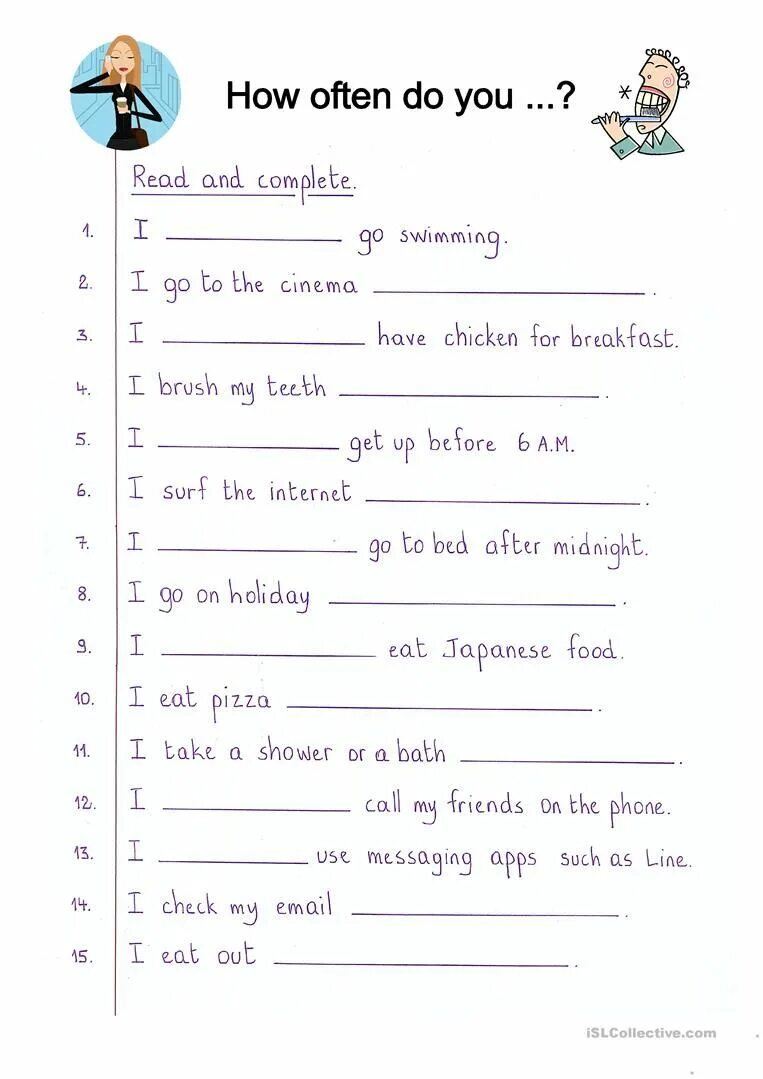 How often do you ...?
Read and complete.
1. I __________ go swimming.
2. I go to the cinema __________ .
3. I __________ have chicken for breakfast.
4. I brush my teeth __________ .
5. I __________ get up before 6 A.M.
6. I surf the internet __________ .
7. I __________ go to bed after midnight.
8. I go on holiday __________ .
9. I __________ eat Japanese food.
10. I eat pizza __________ .
11. I take a shower or a bath __________ .
12. I __________ call my friends on the phone.
13. I __________ use messaging apps such as Line.
14. I check my email __________ .
15. I eat out __________ .
iSLCollective.com